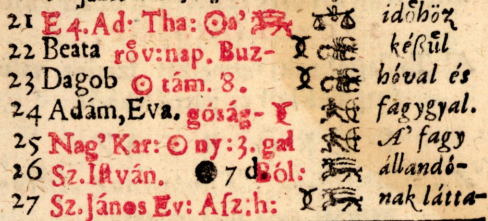 21 E 4. Ad. Tha: ☉ a' ♑ ♎ időhöz
22 Beata rőv: nap. Buz- késűl
23 Dagob ☉ tám. 8. hóval és
24 Adám, Eva. góság- fagygyal.
25 Nag' Kar: ☉ ny: 3. gal A' fagy
26 Sz. Iſtván. ● 7 d Ból: állandó-
27 Sz. János Ev: Aſz: h: nak látta-